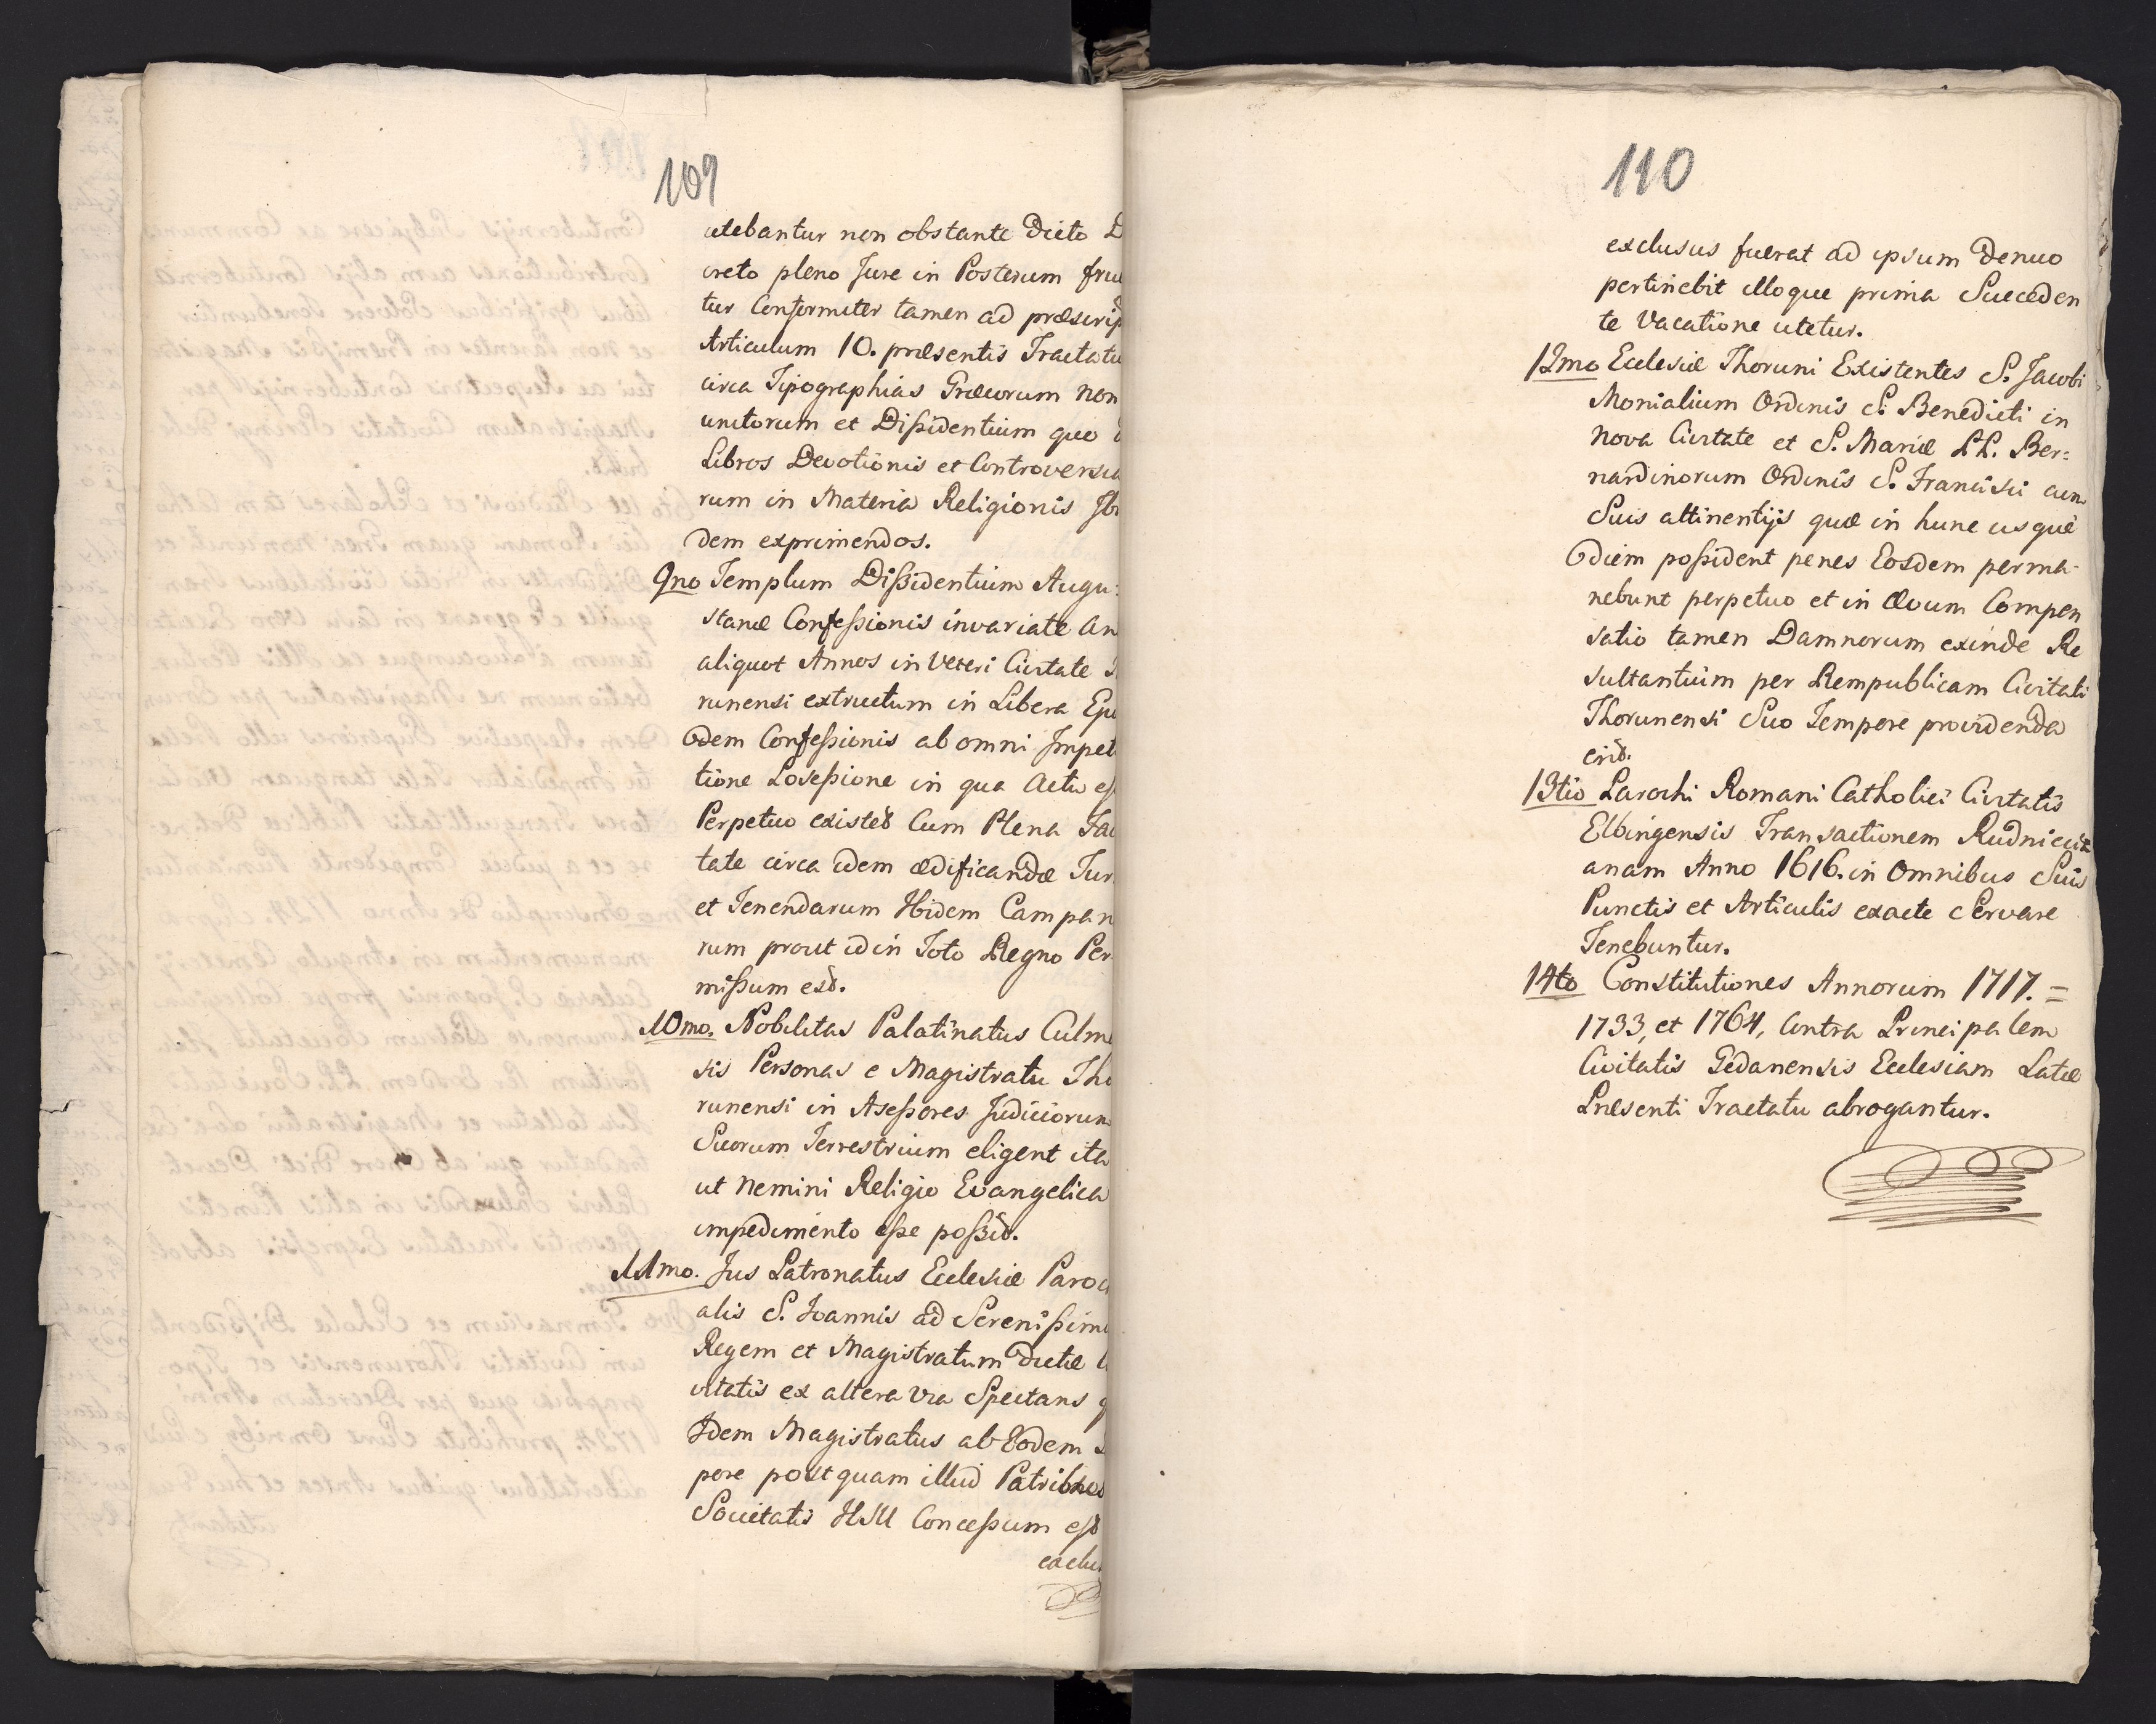 109
utebantur non obstante dicto D
creto pleno Jure in Posterum fru
tur Conformiter tamen ad præscrip
Articulum 10. præsentis Tractatu
circa Tipographias Græcorum non
unitorum et Dißidentium quo
Libros Devotionis et Controversia
rum in Materia Religionis Ibi
dem exprimendos.
9no Templum Dißidentium Augu:
stanæ Confeßionis invariatæ an
aliquot Annos in Veteri Civitate
runensi extructum in Libera Eju
dem Confeßionis ab omni Impet
tione Poseßione in qua Actu es
Perpetuo existet Cum Plena Fac
tate circa idem ædificandæ Tur
et Tenendarum Ibidem Campan
rum prout id in Toto Regno Per
mißum est.
10mo. Nobilitas Palatinatus Culme
sis Personas e Magistratu Tho
runensi in Aseßores Judiciorum
Suorum Terrestrium eligent ita
ut nemini Religio Evangelica
impedimento eße poßit.
11mo. Jus Patronatus Ecclesiæ Paroc
alis S. Joannis ad Serenißimu
Regem et Magistratum dictæ
vitatis ex altera via Spectans q
Idem Magistratus ab Eodem
pore post quam illud Patribus
Societatis JESU Conceßum est
exclu
110
exclusus fuerat ad ipsum denuo
pertinebit illoque prima Succeden
te Vacatione utetur.
12mo Ecclesiæ Thoruni Existentes S. Jacobi
Monialium Ordinis S. Benedicti in
nova Civitate et S. Mariæ PP. Ber=
nardinorum Ordinis S. Francisci cum
Suis attinentijs quæ in hunc usque
diem poßident penes Eosdem perma-
nebunt perpetuo et in ævum Compen
satio tamen Damnorum exinde Re
sultantium per Rempublicam Civitati
Thorunensi Suo Tempore providenda
erit.
13tio Parochi Romani Catholici Civitatis
Elbingensis Transactionem Rudnicii
anam Anno 1616. in Omnibus Suis
Punctis et Articulis exacte Servare
Tenebuntur.
14to Constitutiones Annorum 1717. =
1733, et 1764, Contra Principalem
Civitatis Gedanensis Ecclesiam Latæ
Præsenti Tractatu abrogantur.